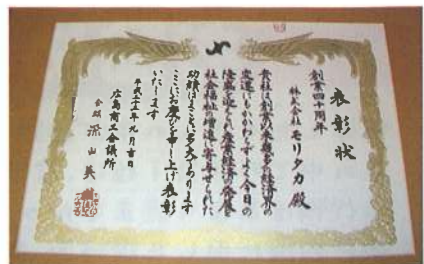 表彰状
創業四十周年
株式会社 モリタカ 殿
貴社は創業以来幾多の経済界の
変遷にもかかわらずよく今日の
隆盛を迎えられ産業経済の発展と
社会福祉の増進に寄与せられた
功績はまことに多大であります
ここにお慶びを申し上げ表彰
いたします
平成二十三年九月吉日
広島商工会議所
会頭 深山英